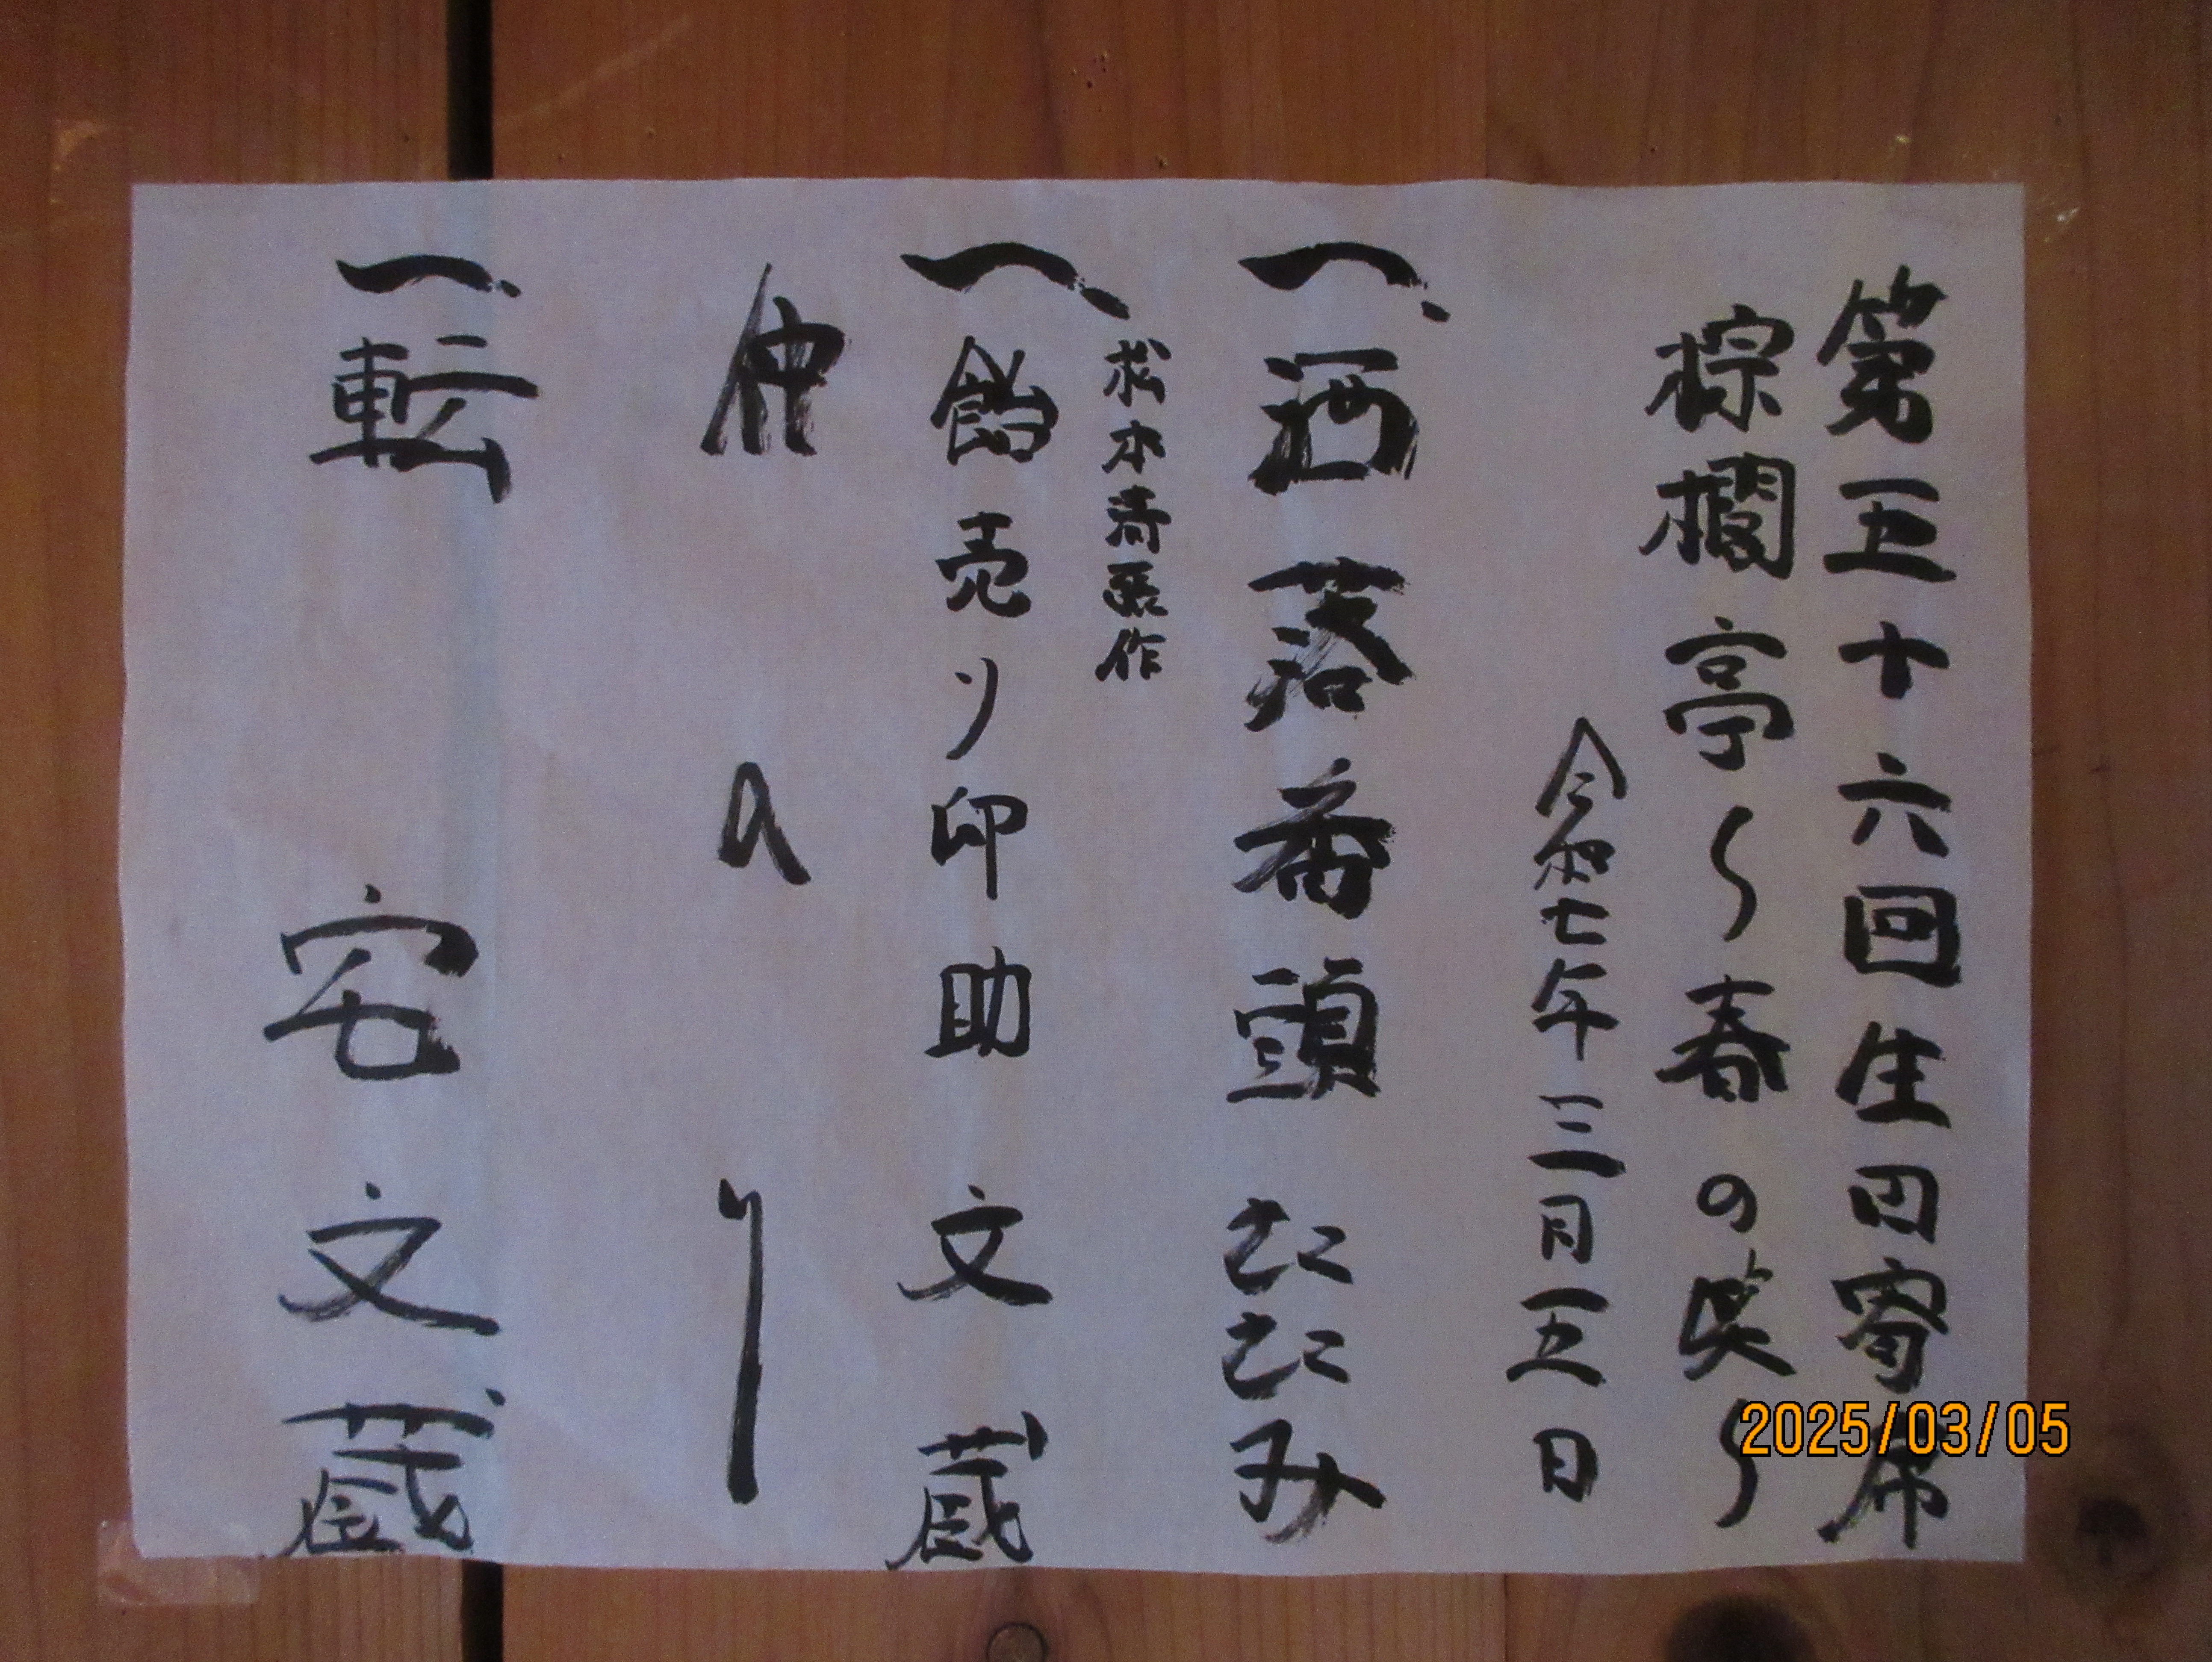 第五十六回生田寄席
棕櫚亭〜春の笑〜
令和七年三月五日
一、洒落番頭 さん さん み
松本清張作
一、飴売り印助 文蔵
仲入り
一、転宅 文蔵
2025/03/05